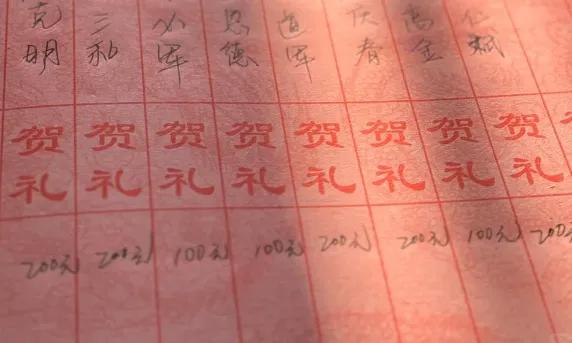 仁斌贺礼200元
高金贺礼100元
庆春贺礼200元
道军贺礼200元
德贺礼100元
小军贺礼100元
三和贺礼200元
克明贺礼200元